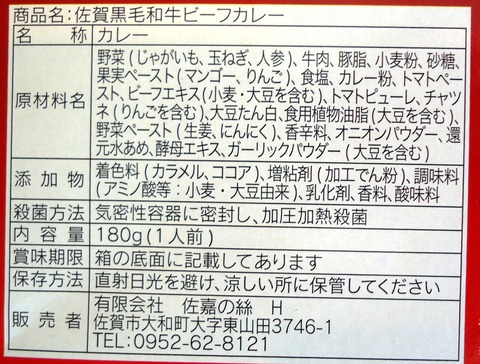 商品名:佐賀黒毛和牛ビーフカレー
名 称 カレー
原材料名
野菜(じゃがいも、玉ねぎ、人参)、牛肉、豚脂、小麦粉、砂糖、
果実ペースト(マンゴー、りんご)、食塩、カレー粉、トマトペー
スト、ビーフエキス(小麦・大豆を含む)、トマトピューレ、チャツ
ネ(りんごを含む)、大豆たん白、食用植物油脂(大豆を含む)、
野菜ペースト(生姜、にんにく)、香辛料、オニオンパウダー、還
元水あめ、酵母エキス、ガーリックパウダー(大豆を含む)
添 加 物
着色料(カラメル、ココア)、増粘剤(加工でん粉)、調味料
(アミノ酸等:小麦・大豆由来)、乳化剤、香料、酸味料
殺菌方法 気密性容器に密封し、加圧加熱殺菌
内 容 量 180g(1人前)
賞味期限 箱の底面に記載してあります
保存方法 直射日光を避け、涼しい所に保管してください
販 売 者
有限会社 佐嘉の絲 H
佐賀市大和町大字東山田3746-1
TEL:0952-62-8121